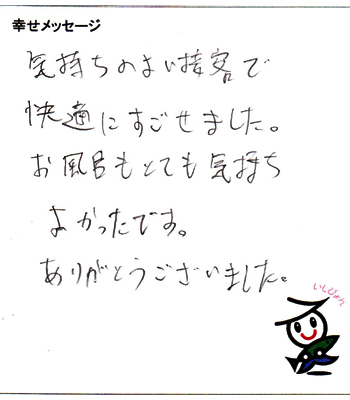 幸せメッセージ
気持ちのよい接客で
快適にすごせました。
お風呂もとても気持ち
よかったです。
ありがとうございました。